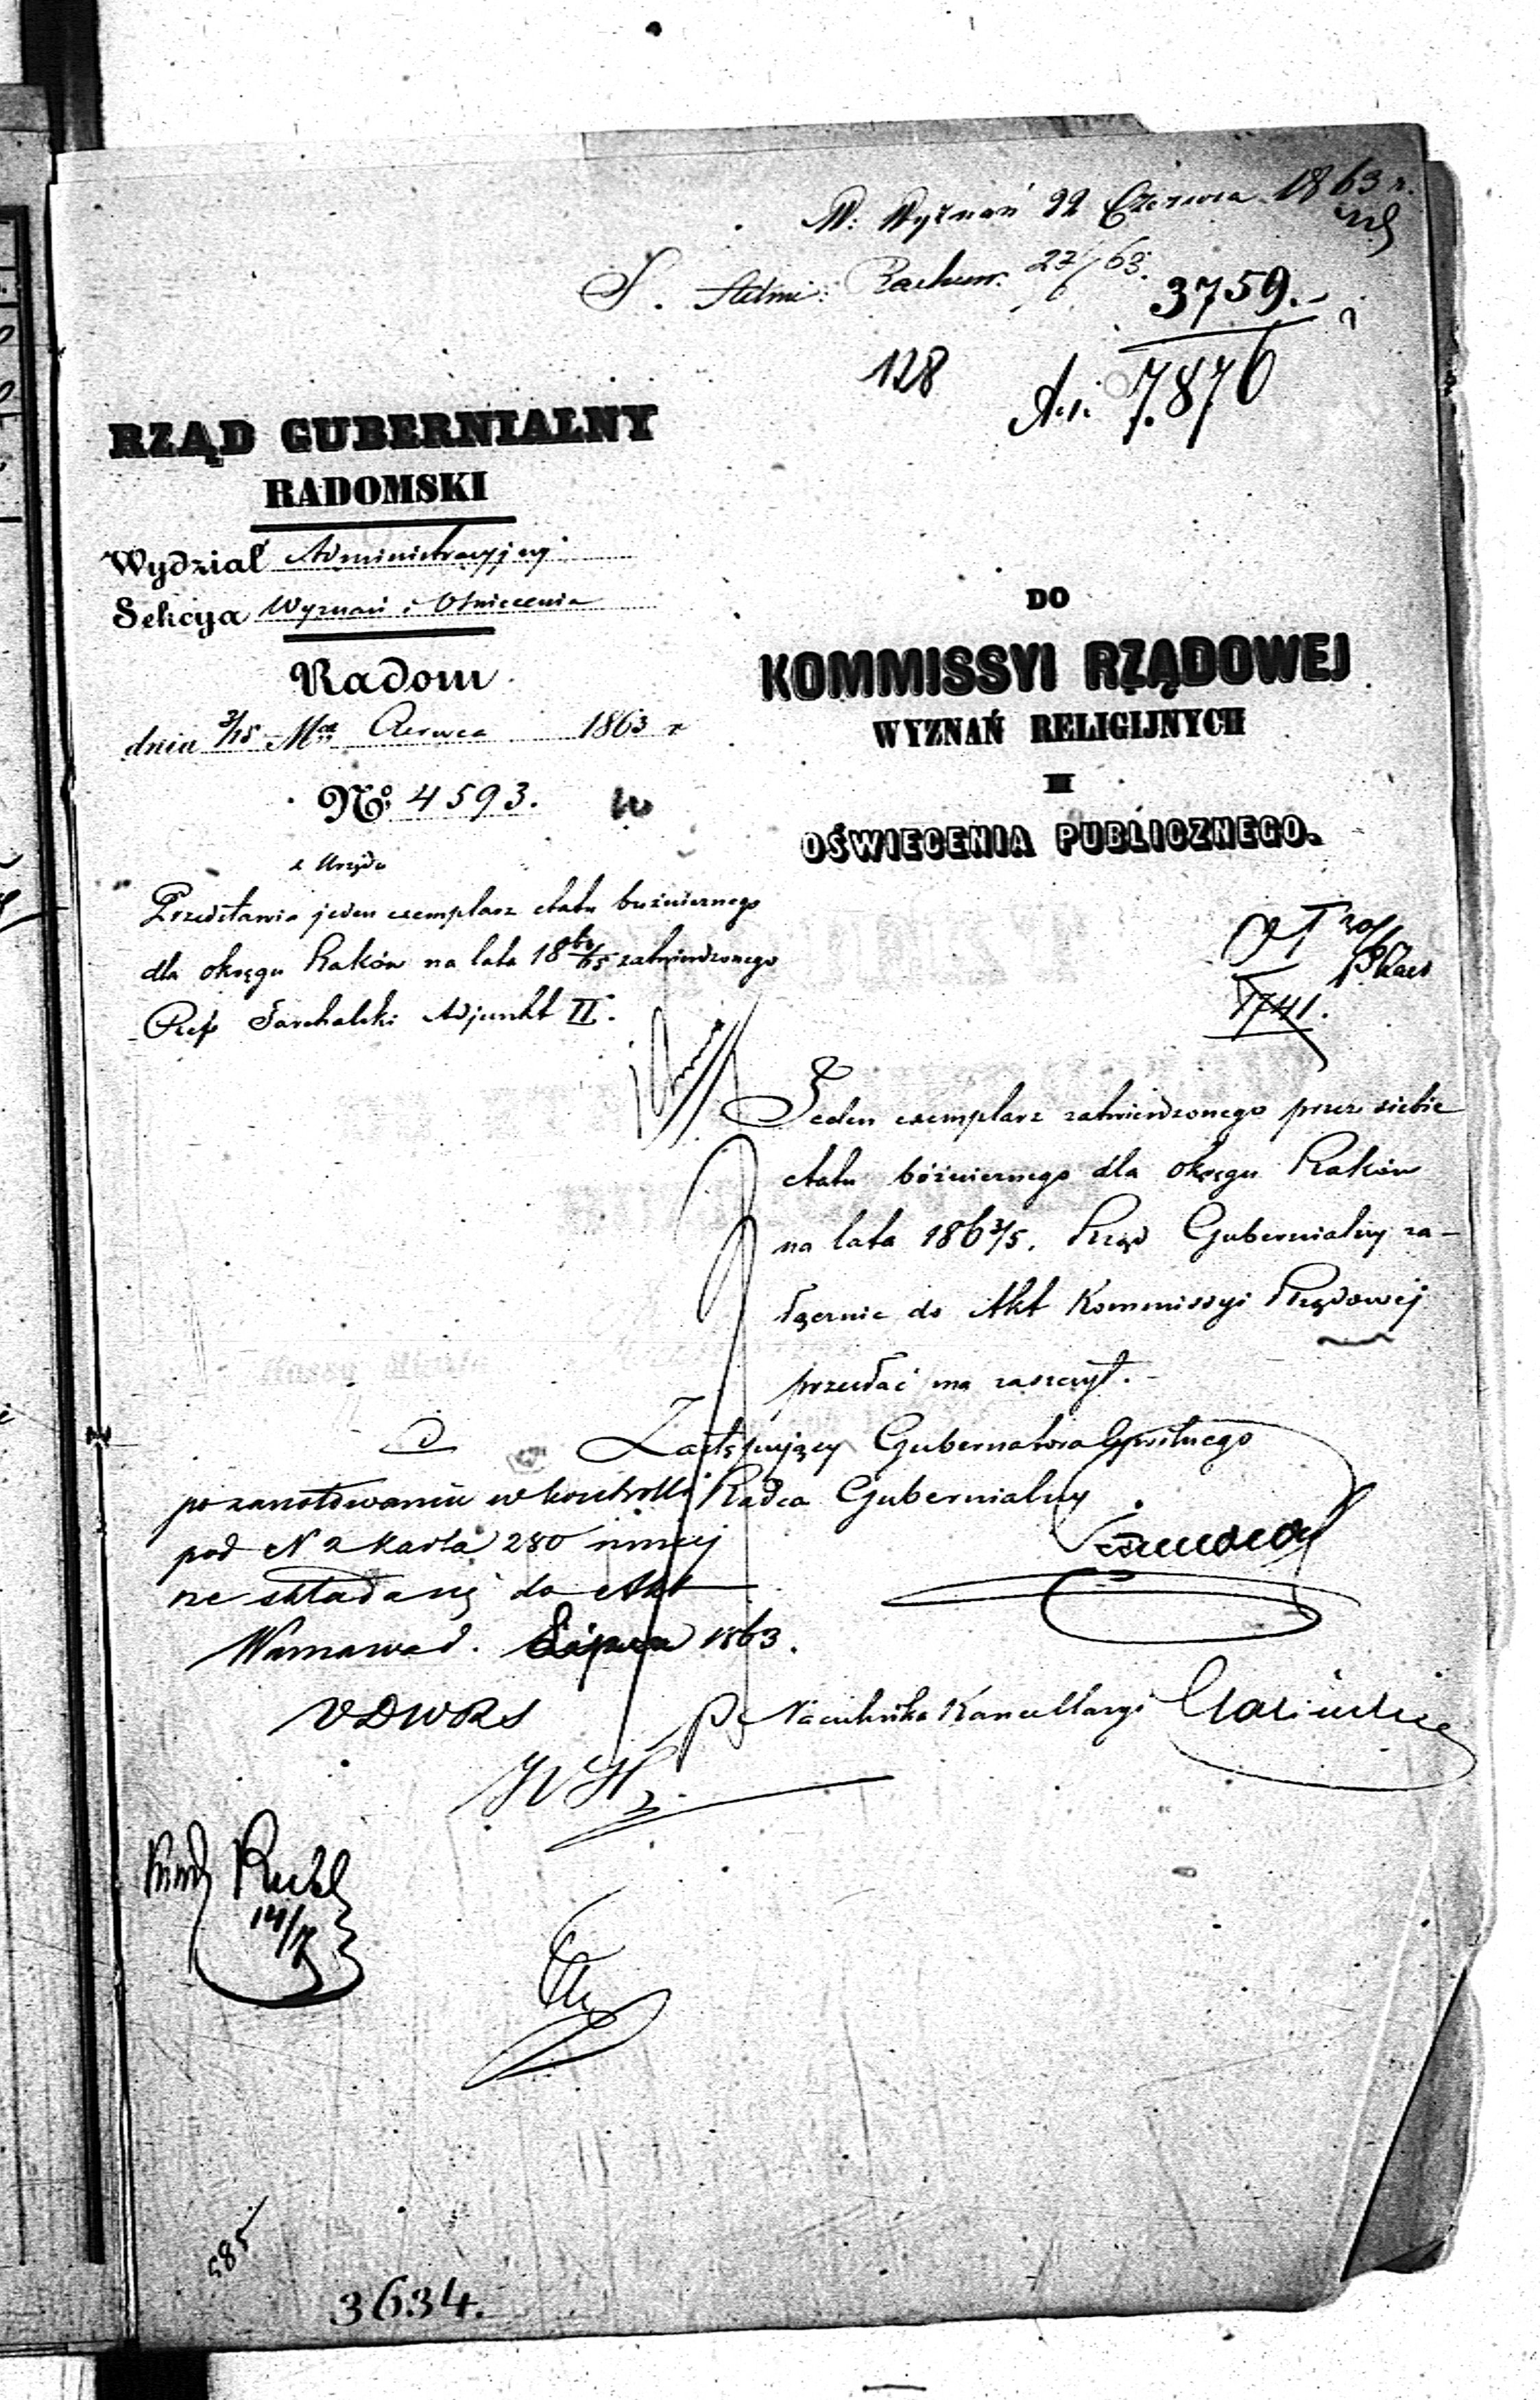 W. Wyznań 22 Czerwca 1863 r.
S. Admi: Rachun. 23/6 63.
3759.
128
A.i. 7876
RZĄD GUBERNIALNY
RADOMSKI
Wydział Administracyjny
Sekcya Wyznań i Oświecenia
Radom
dnia 3/15 Mca Czerwca 1863 r
No: 4593.
z Urzędu
Przedstawia jeden exemplarz etatu bużnicznego
dla okręgu Raków na lata 1863/65 zatwierdzonego
Ref Adjunkt II.
DO
KOMMISSYI RZĄDOWEJ
WYZNAŃ RELIGIJNYCH
I
OŚWIECENIA PUBLICZNEGO.
1741.
Jeden exemplarz zatwierdzonego przez siebie
etatu bóżnicznego dla okręgu Raków
na lata 1863/5. Rząd Gubernialny za-
łącznie do Akt Kommissyi Rządowej
przesłać ma zaszczyt.
Zastępujący Gubernatora Cywilnego
Radca Gubernialny
po zanotowaniu w kontrolli
pod N 2 karta 280 niniej
sze składa się do Akt
Warszawa d. Lipca 1863.
VDWRS
p. Naczelnika Kancellaryi
14/7
585
3634.